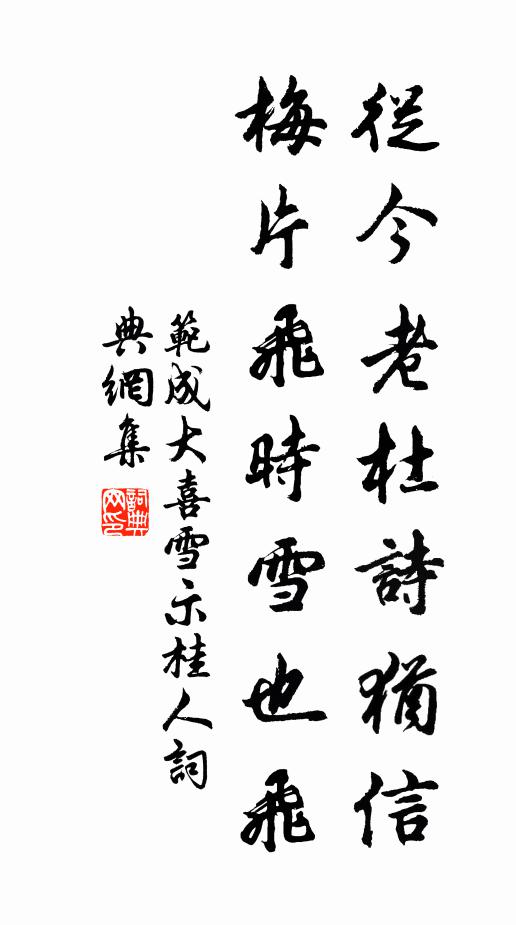 從今老杜詩猶信
梅片飛時雪也飛
範成大喜雪示桂人詞
典網集
詞典網印